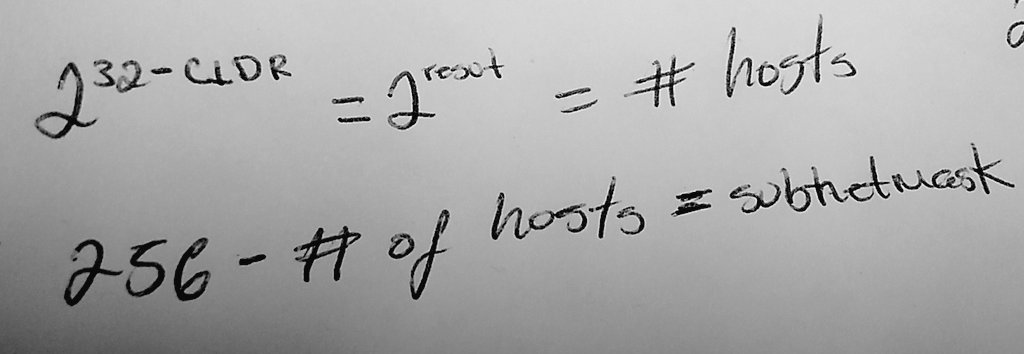 2^32-CIDR = 2^resut = # hosts
256 - # of hosts = subnetmask